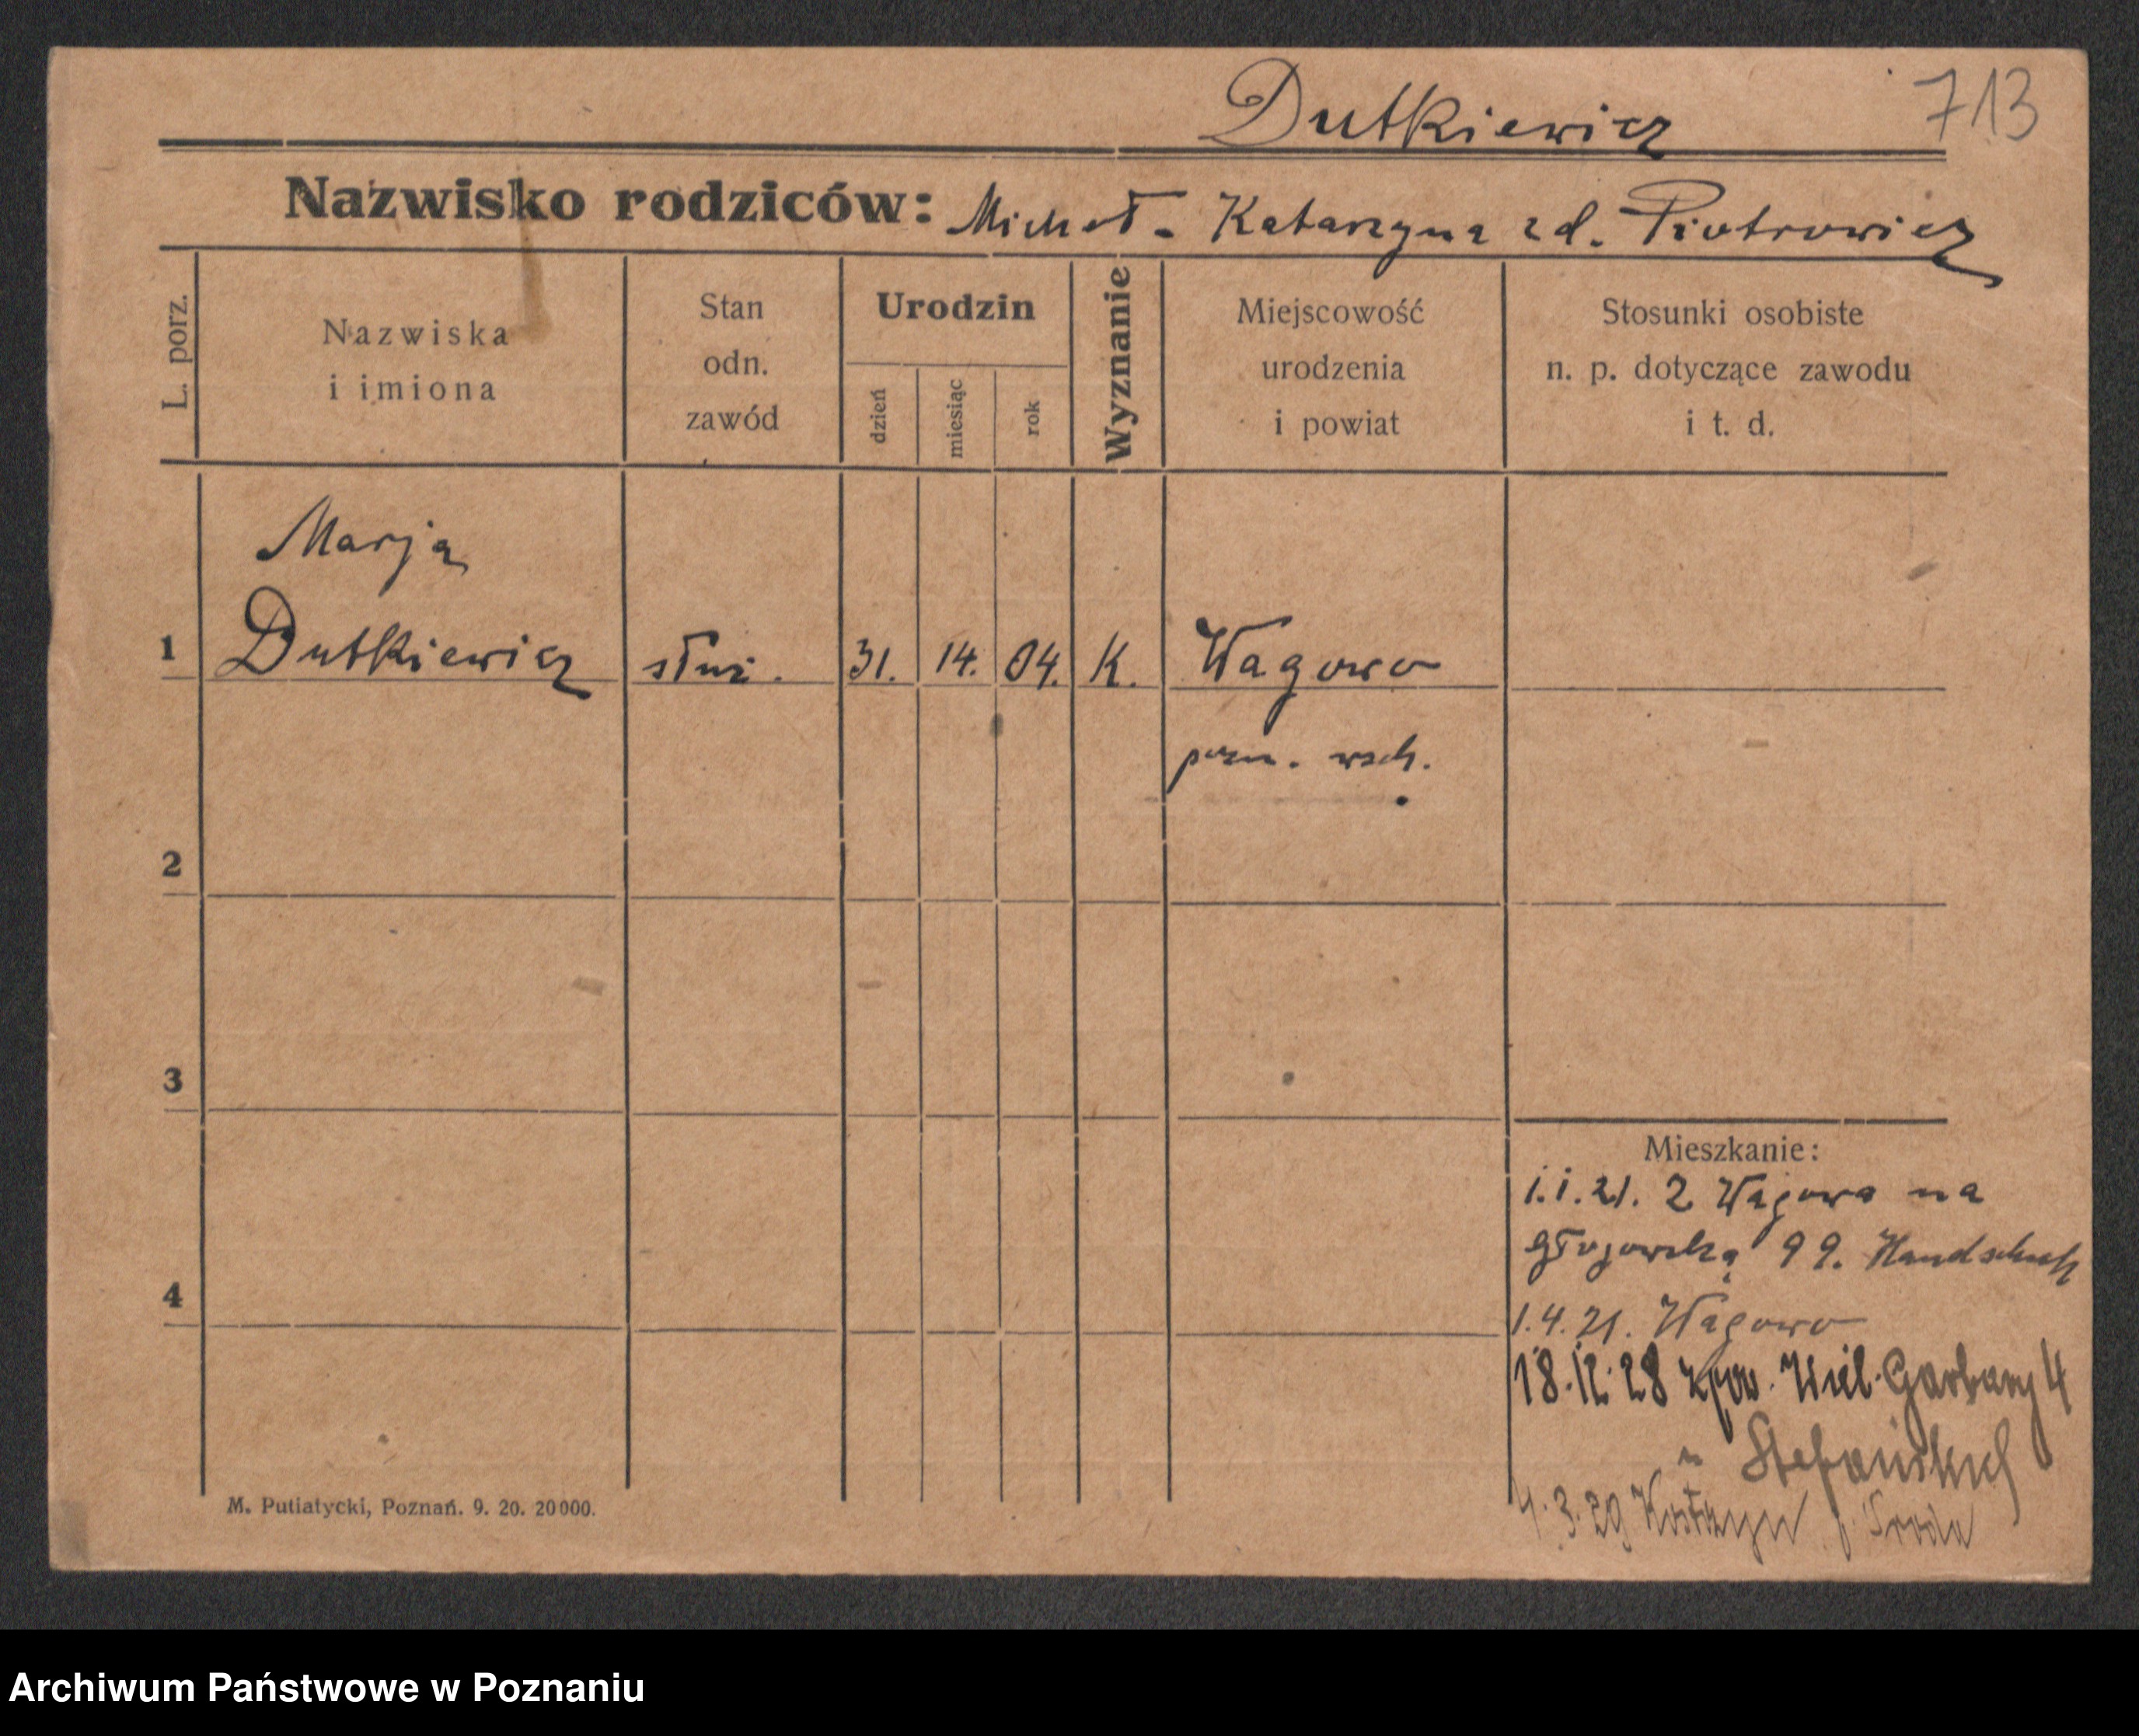 Dutkiewicz 713
Nazwisko rodziców: Michał - Katarzyna zd. Piotrowicz
L. porz.
Nazwiska
i imiona
Stan
odn.
zawód
Urodzin
dzień
miesiąc
rok
Wyznanie
Miejscowość
urodzenia
i powiat
Stosunki osobiste
n. p. dotyczące zawodu
i t. d.
Marja
1 Dutkiewicz służ. 31. 14. 04. K. Wagowo
pozn. wsch.
2
3
4
Mieszkanie:
1.1.21. z Wagowa na
głogowską 99. Handschuh
1.4.21. Wagowo
18.12.28 zpow. Wiel. Garbary 4
u Stefańskich
4.3.29 Kostrzyn p. Środa
M. Putiatycki, Poznań. 9. 20. 20000.
Archiwum Państwowe w Poznaniu